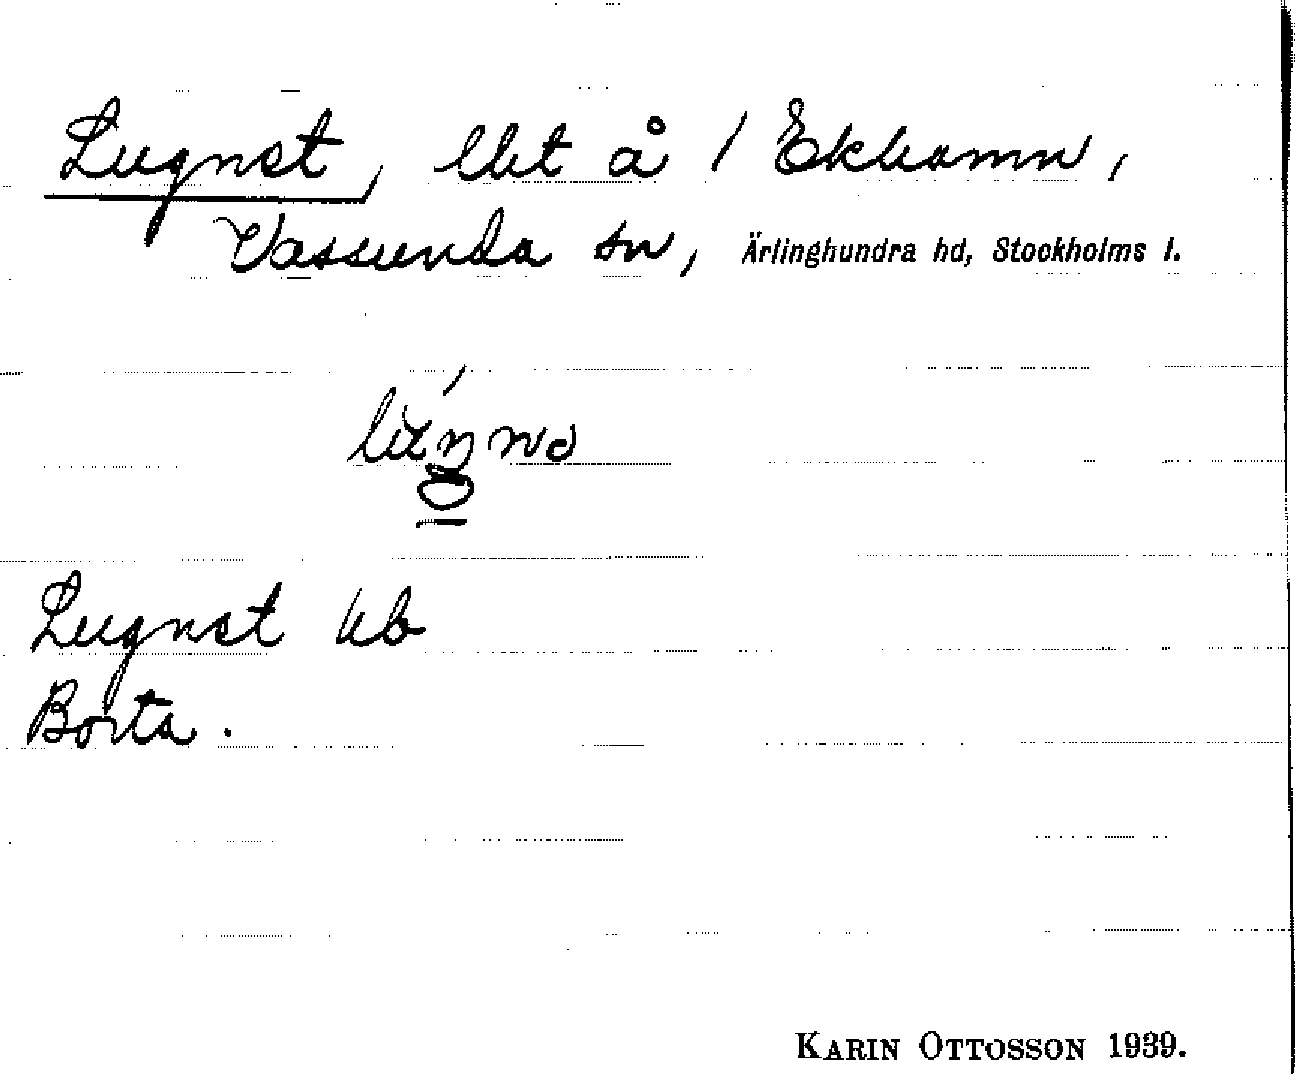 Lugnet, lht å / Ekhamn,
Vassunda sn, Ärlinghundra hd, Stockholms l.
Lugnet kb
Borta.
KARIN OTTOSSON 1939.